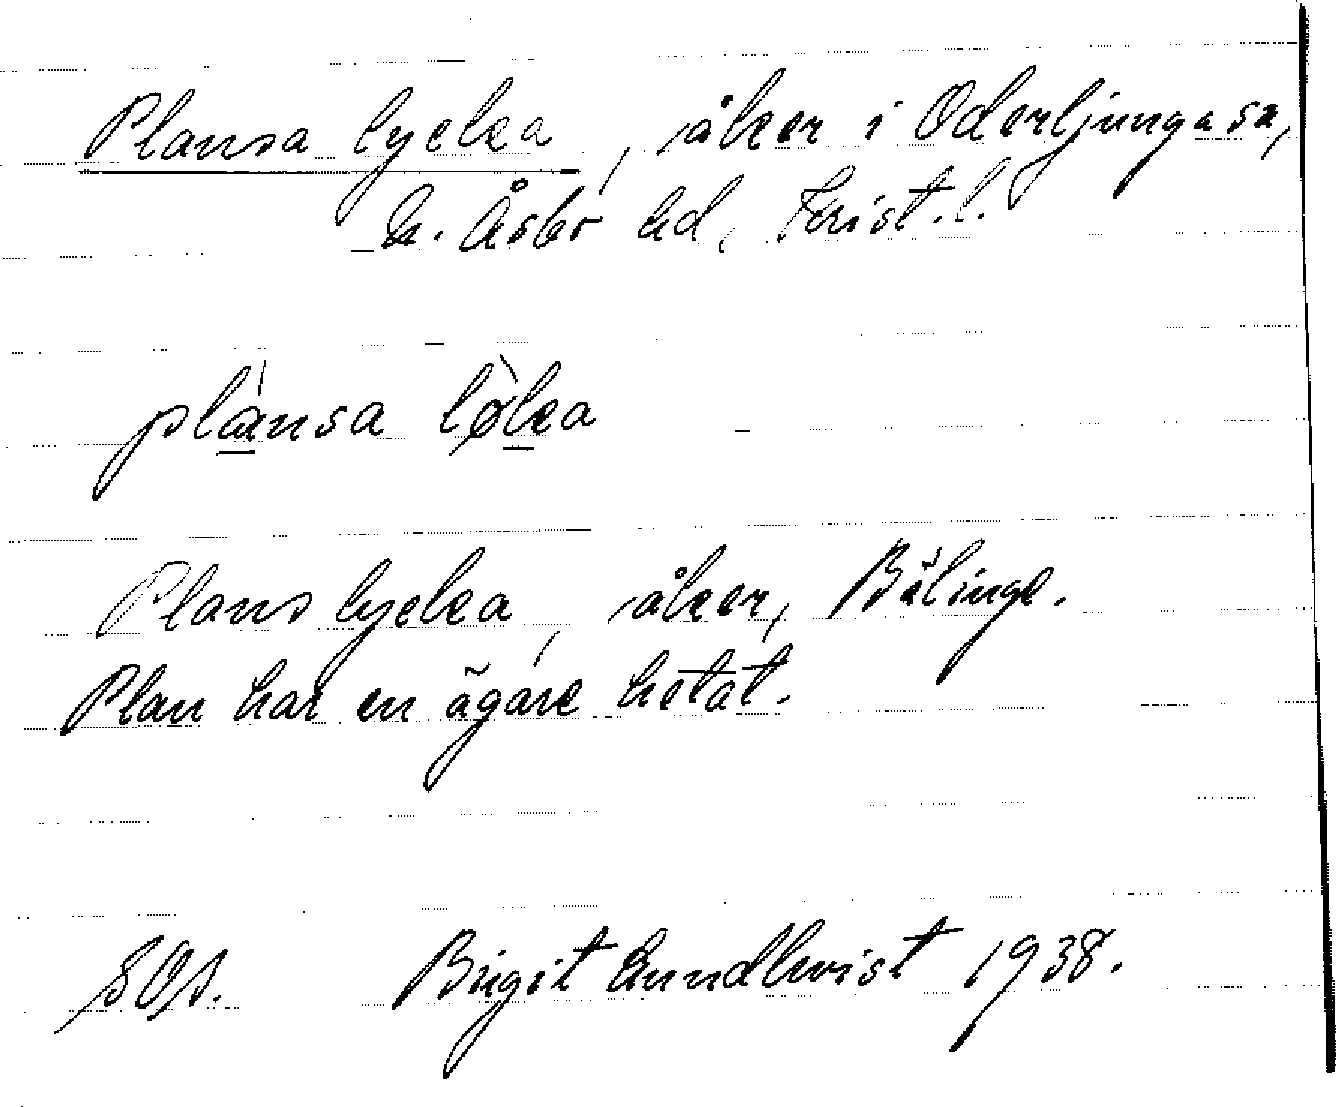 Plansa lycka, åker i Oderljunga sn,
N. Åsbo hd, Krist. l.
plánsa lø̀ka
Plans lycka, åker, Bälinge.
Plan har en ägare hetat.
SOA. Birgit Lundkvist 1938.